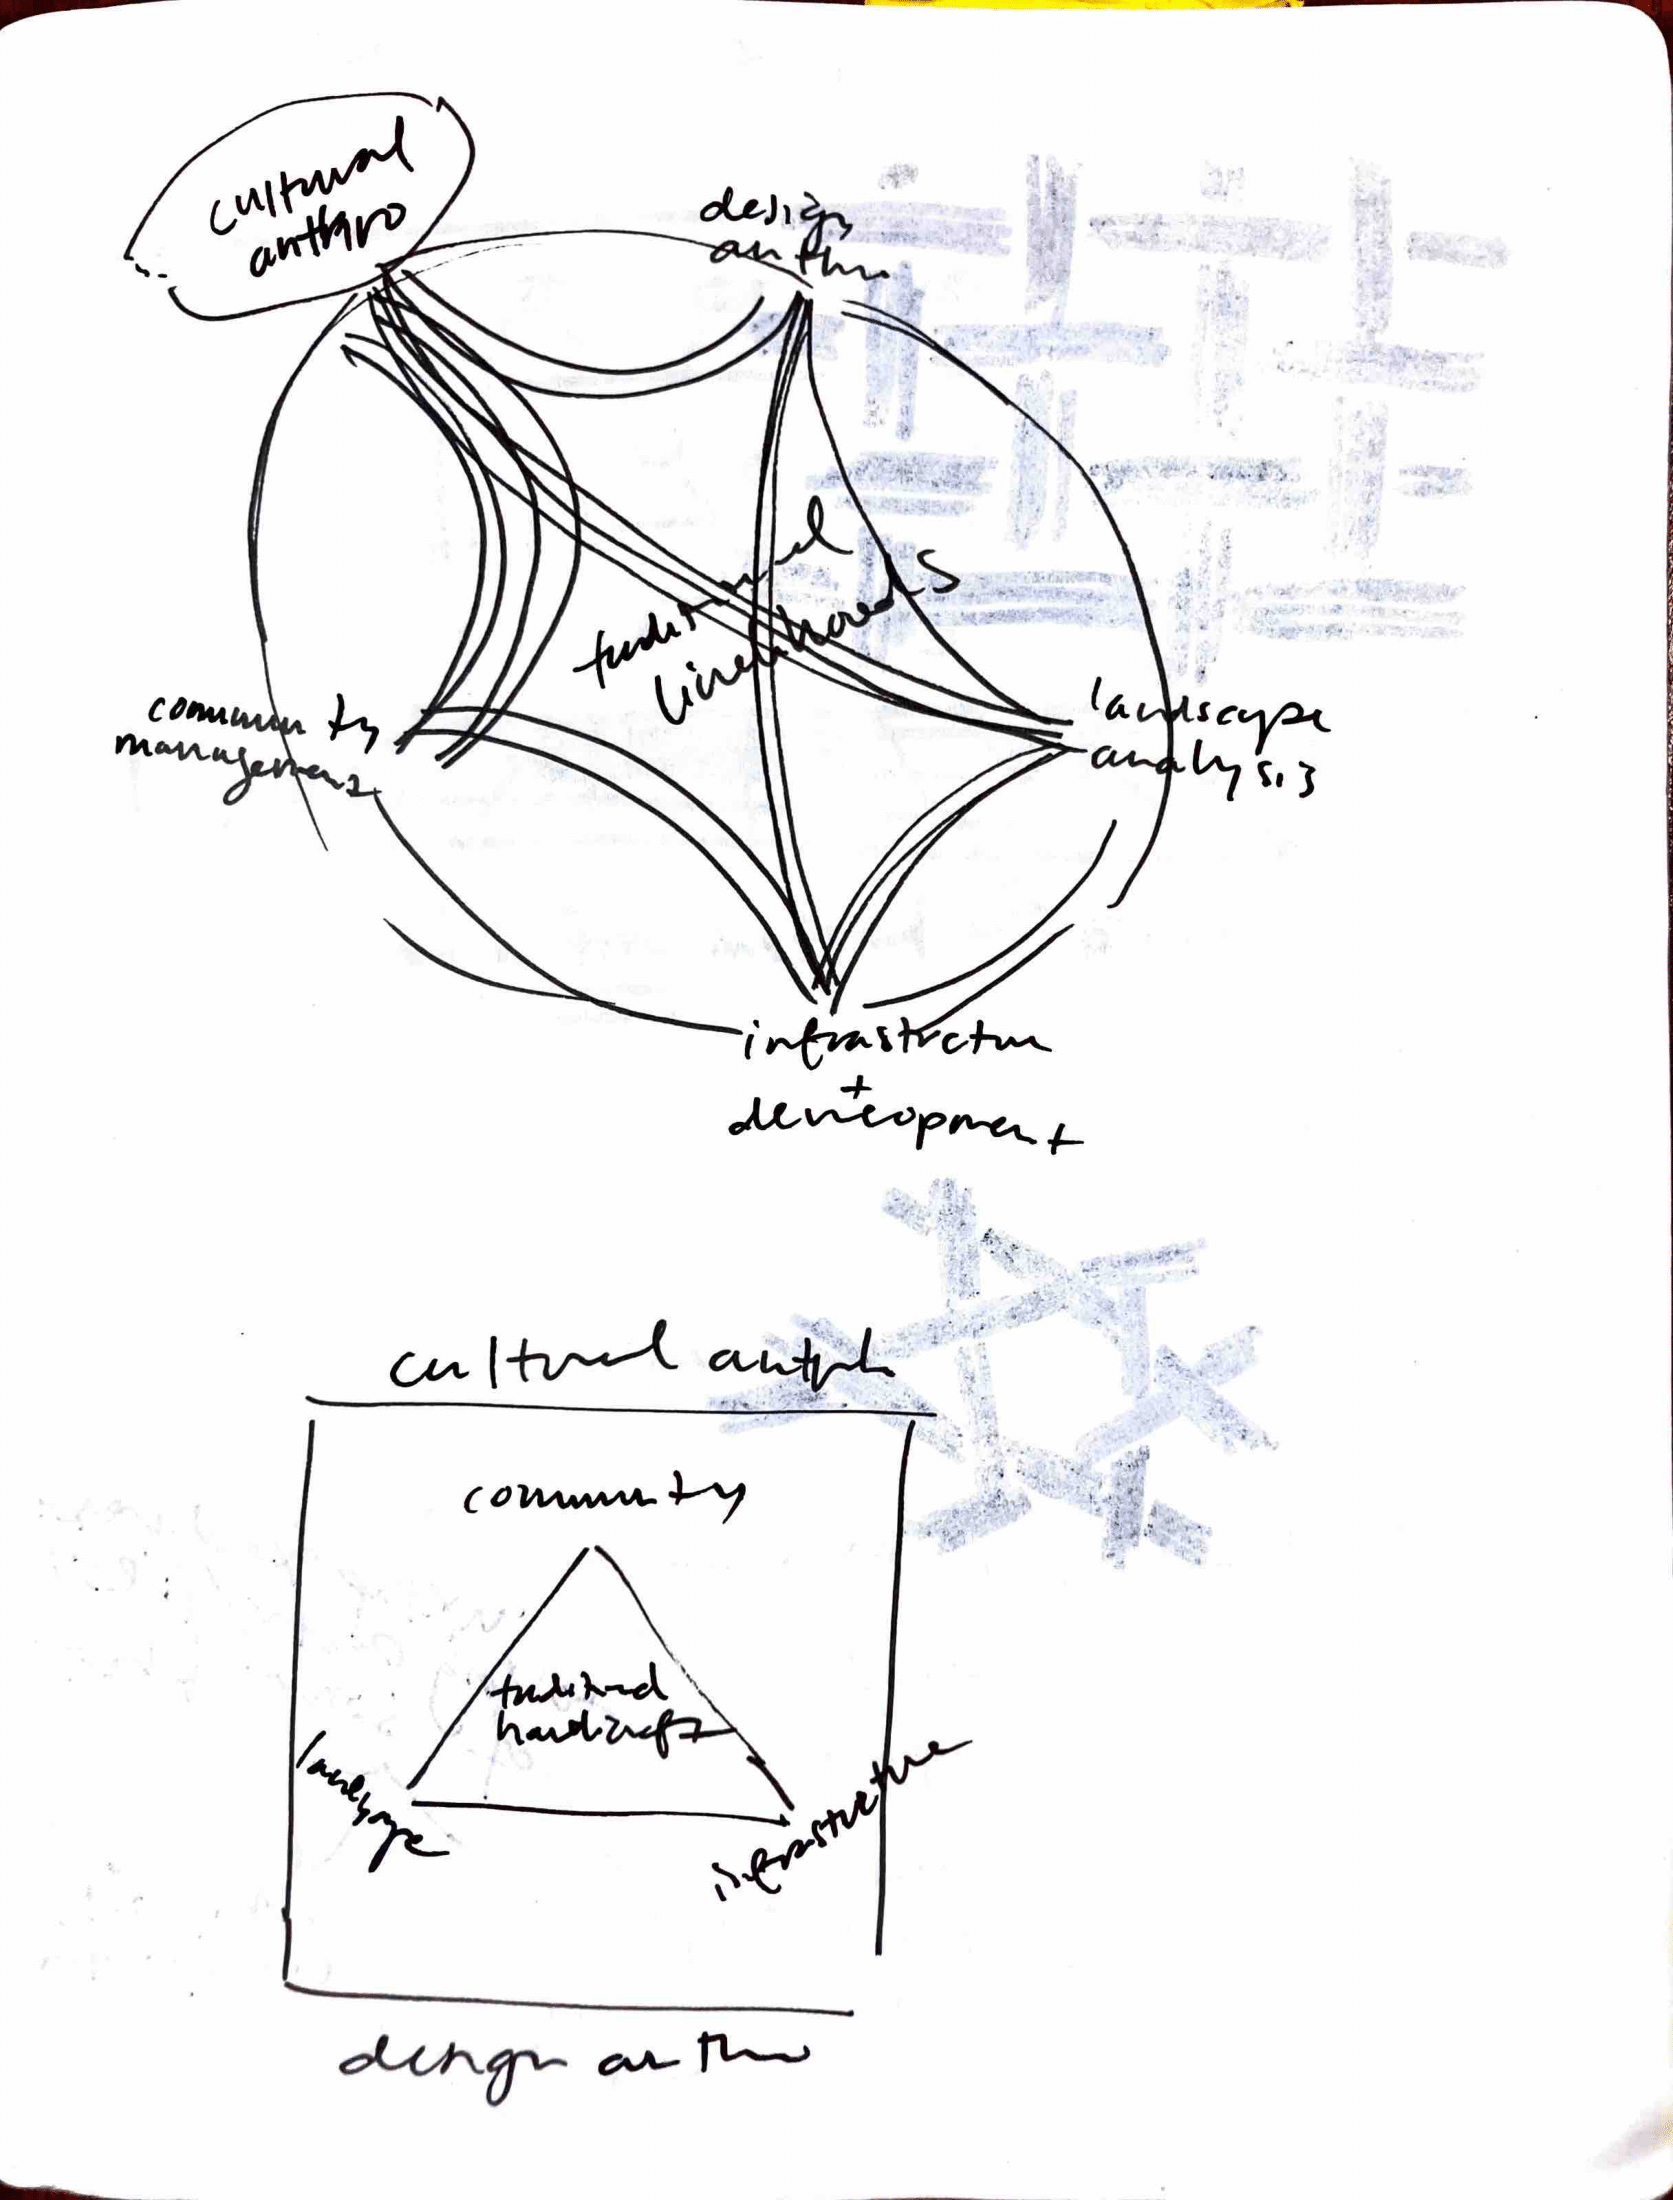 cultural
anthro
design
anthro
traditional
livelihoods
community
management
landscape
analysis
infrastructure
+
development
cultural anth
community
traditional
handicraft
landscape
infrastructure
design anthro